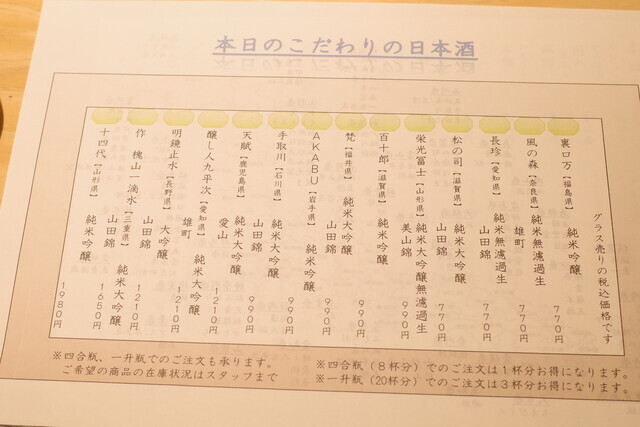 本日のこだわりの日本酒
グラス売りの税込価格です
裏ロ万【福島県】 純米吟醸 770円
風の森【奈良県】 純米無濾過生
雄町 770円
長珍【愛知県】 純米無濾過生
山田錦 770円
松の司【滋賀県】 純米大吟醸
山田錦 770円
栄光冨士【山形県】 純米大吟醸無濾過生
美山錦 990円
百十郎【滋賀県】 純米吟醸 990円
梵【福井県】 純米大吟醸
山田錦 990円
AKABU【岩手県】 純米吟醸 990円
手取川【石川県】 純米大吟醸 990円
山田錦
天賦【鹿児島県】 純米大吟醸 990円
愛山
醸し人九平次【愛知県】 純米大吟醸 1210円
雄町 1210円
明鏡止水【長野県】 大吟醸
山田錦 1210円
作 槐山一滴水【三重県】 純米大吟醸
山田錦 1650円
十四代【山形県】 純米吟醸
1980円
※四合瓶、一升瓶でのご注文も承ります。
ご希望の商品の在庫状況はスタッフまで
※四合瓶（8杯分）でのご注文は1杯分お得になります。
※一升瓶（20杯分）でのご注文は3杯分お得になります。